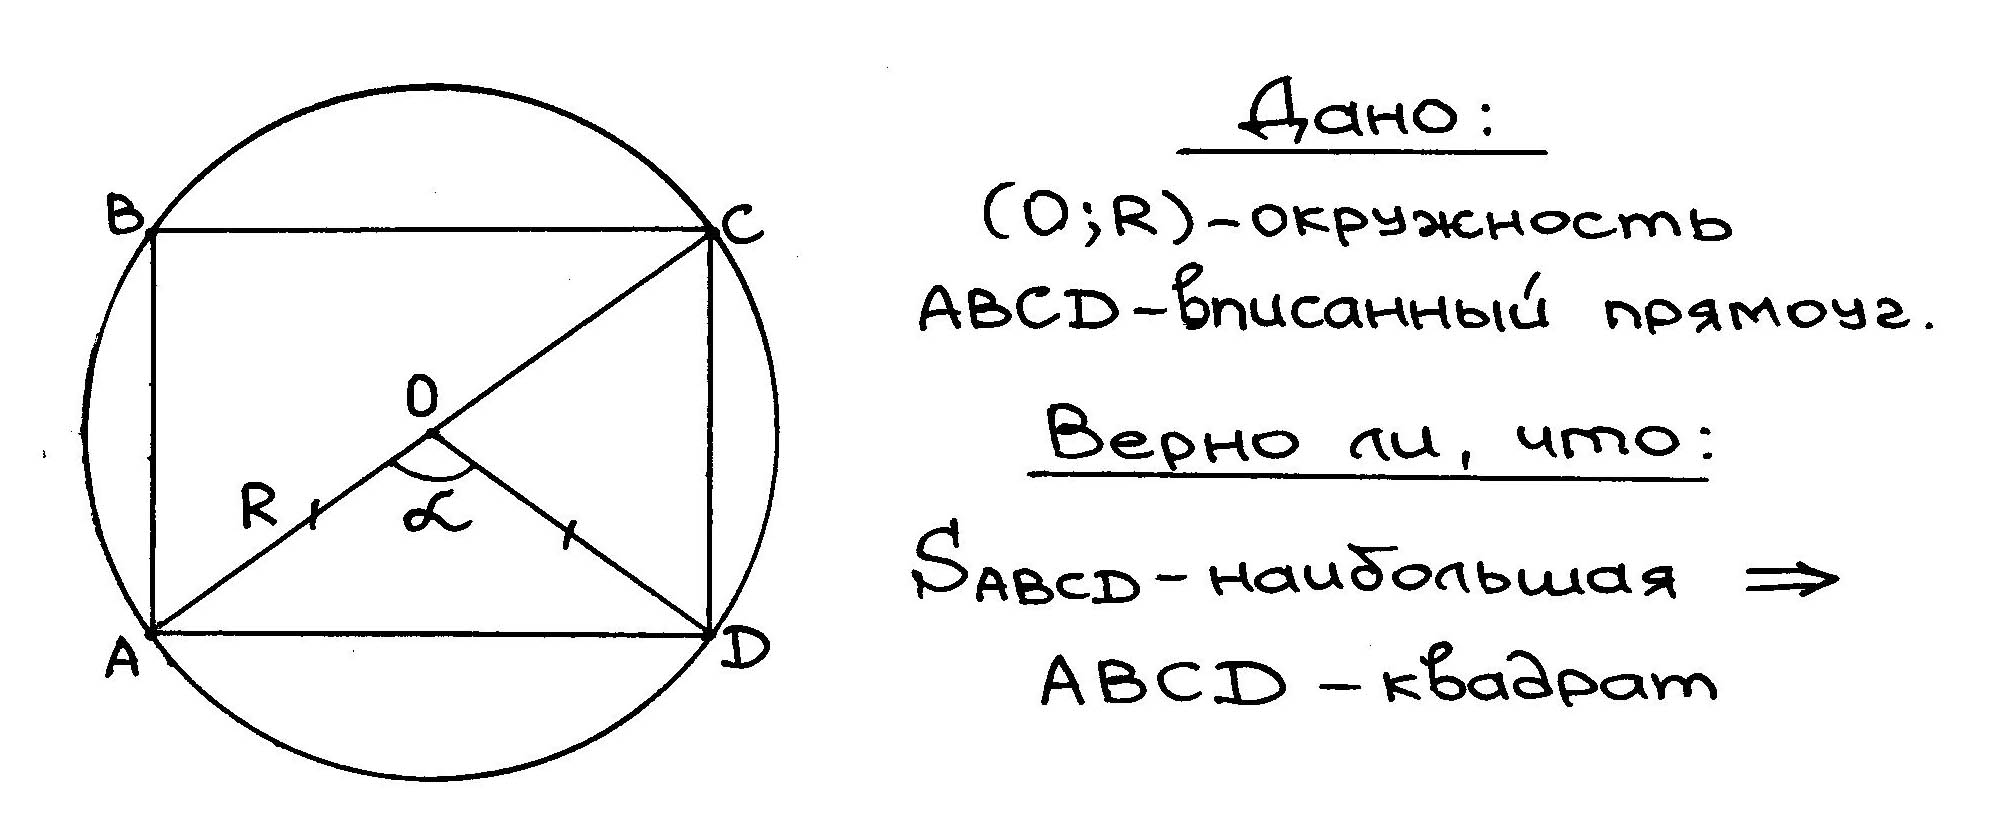 Дано:
(O;R)-окружность
ABCD-вписанный прямоуг.
Верно ли, что:
SABCD-наибольшая ⇒
ABCD-квадрат
B
C
O
R
α
A
D